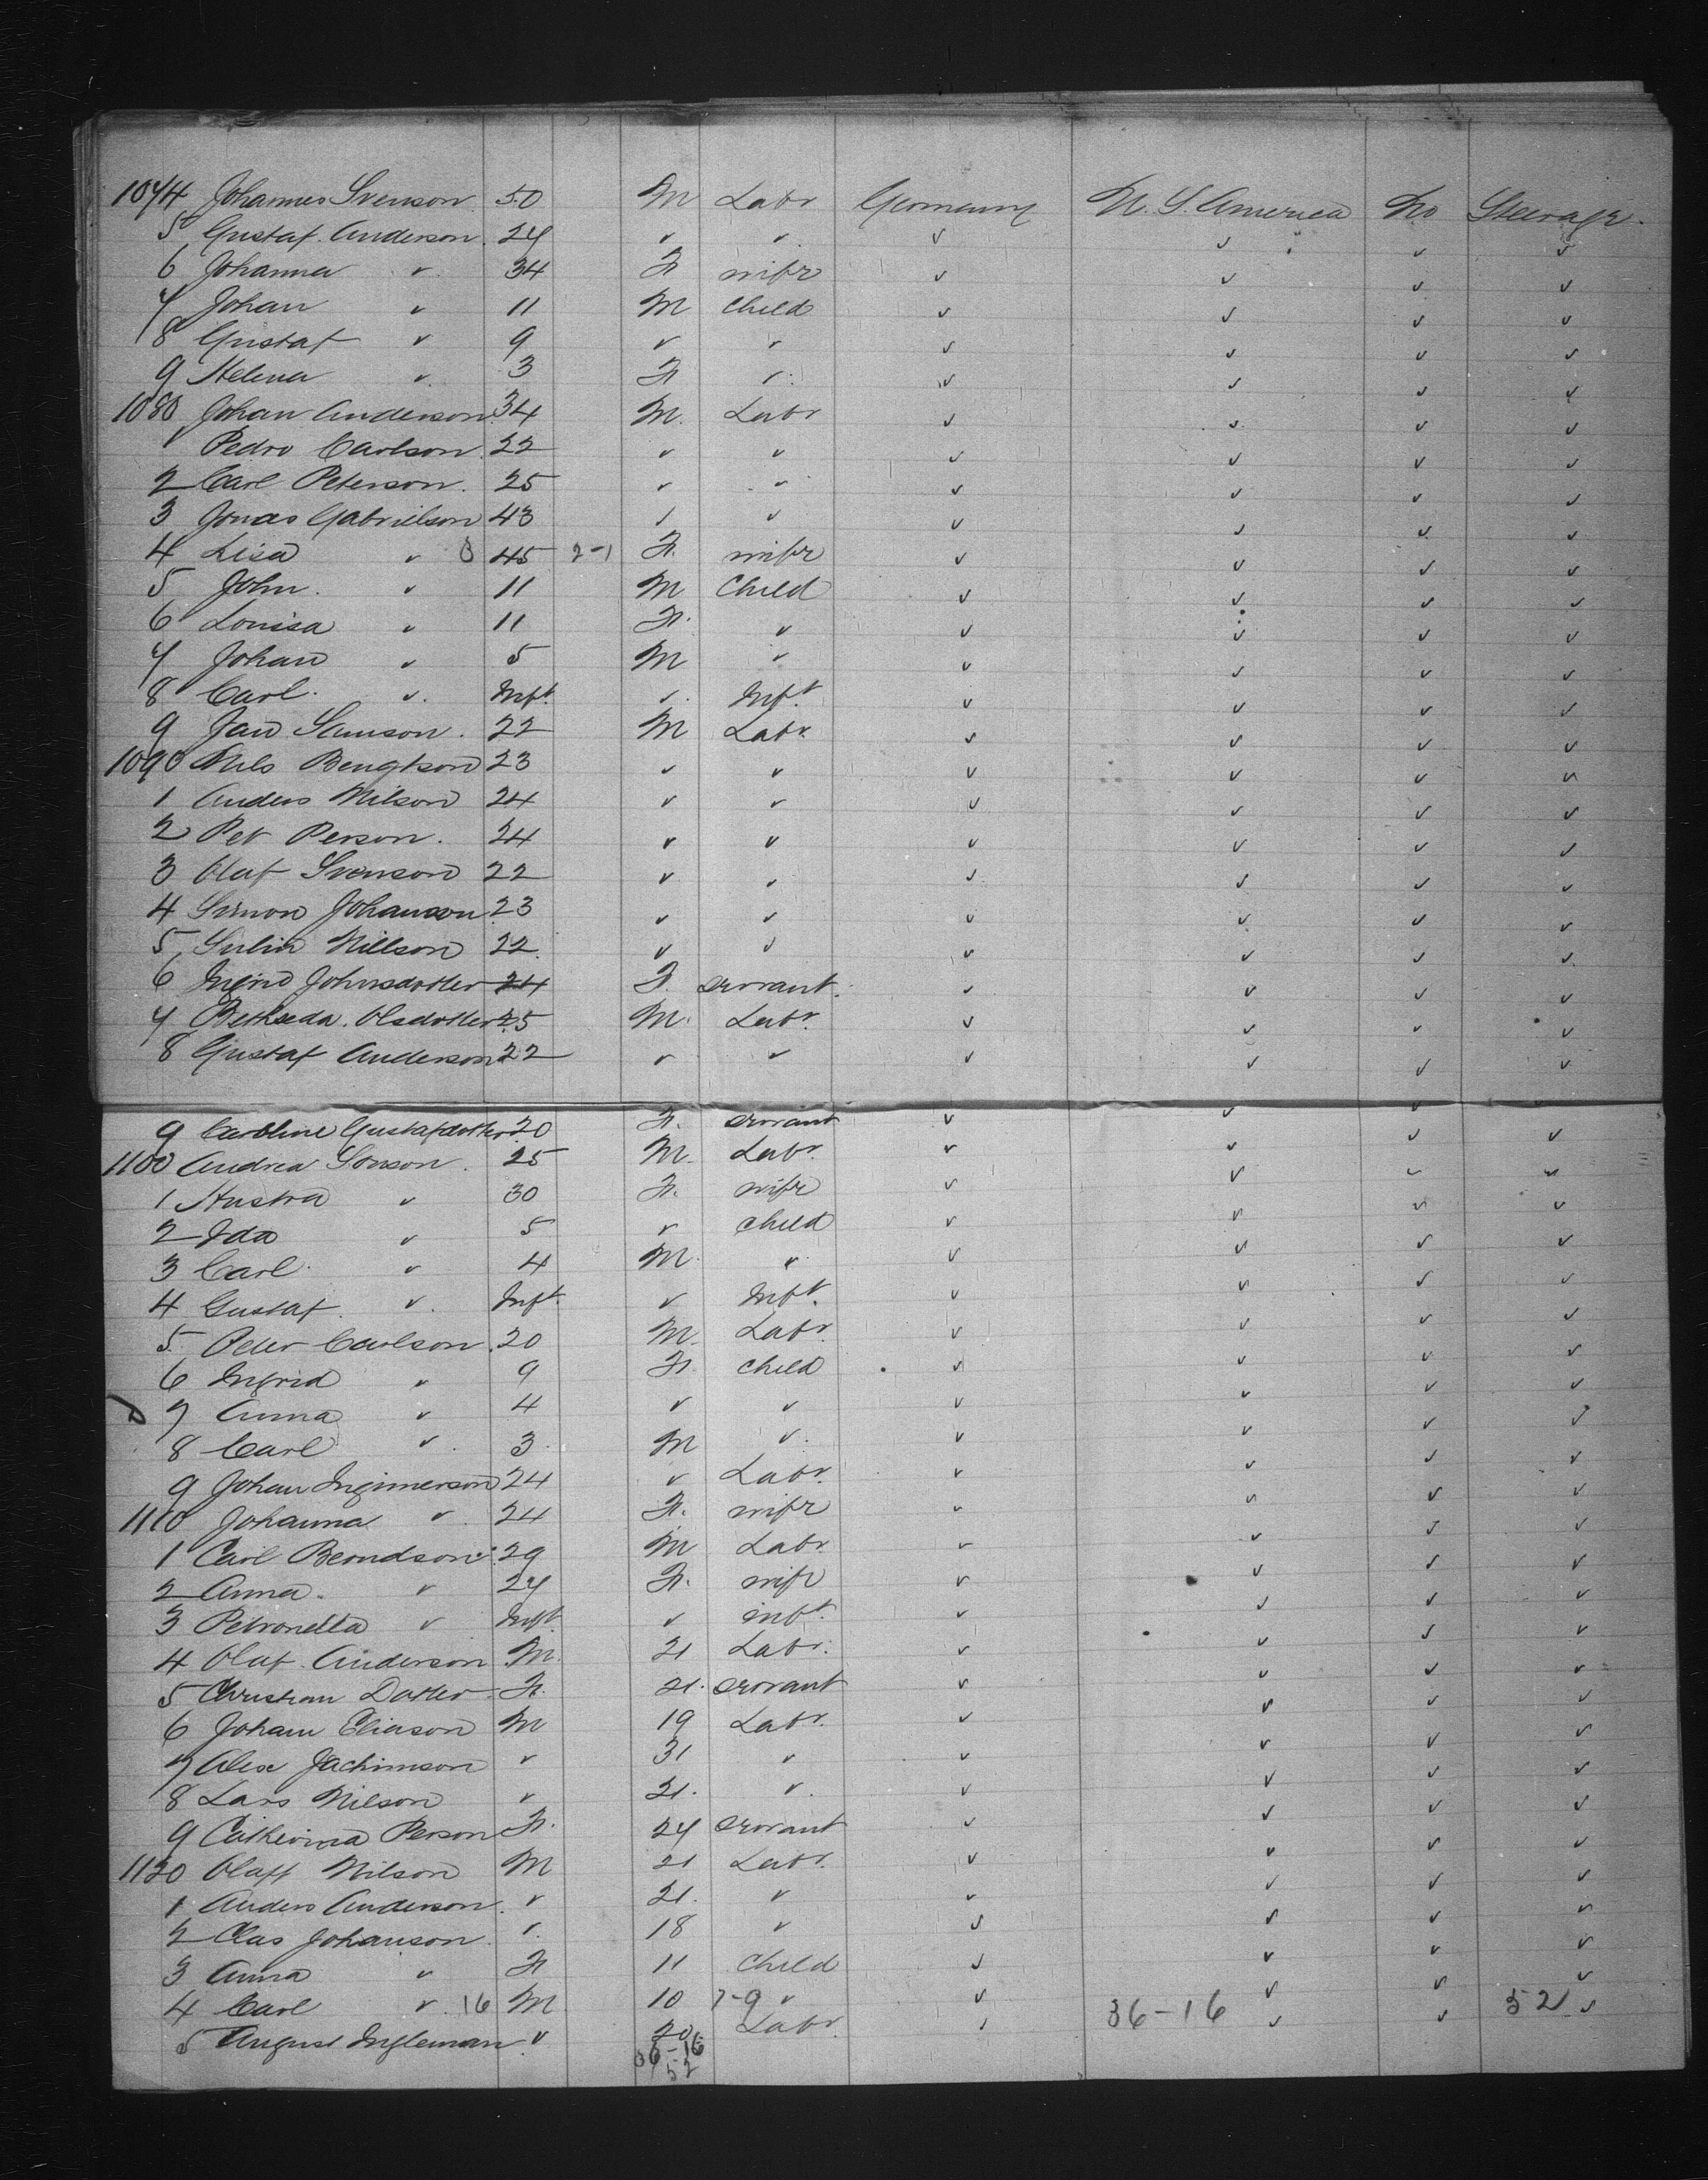 1074 Johannes Svenson 50 M Labr Germany U.S. America No Steerage.
5 Gustaf. Anderson. 27 v v. v v v v
6 Johanna v. 34 F wife v v v v
7 Johan v 11 M Child v v v v
8 Gustaf v 9 v v v v v v
9 Helena v. 3 F v. v v v v
1080 Johan Anderson 34 M. Labr v v v v
1 Pedro Carlson. 22 v v v v v v
2 Carl Peterson. 25 v v v v v v
3 Jonas Gabrielson 43 v v v v v v
4 Lisa v 8 45 2-1 F. wife v v v v
5 John. v 11 M Child v v v v
6 Louisa v 11 F. v v v v v
7 Johan v 5 M v v v v v
8 Carl. v. Inft. v. Inft. v v v v
9 Jan Samson. 22 M Labr. v v v v
1090 Nils Bengtson 23 v v v v v v
1 Anders Nilson 24 v v v v v v
2 Per Person. 24 v v v v v v
3 Olaf Svenson 22 v v v v v v
4 Simon Johanson 23 v v v v v v
5 Nillson 22. v v v v v v
6 Ingrid Johnsdotter 24 F. servant. v v v v
7 Bethseda. Olsdotter 25 M. Labr. v v v v
8 Gustaf Anderson 22 v v v v v v
9 Caroline Gustafdotter 20 F. servant v v v v
1100 Andrea Sonson. 25 M. Labr. v v v v
1 v 30 F. wife v v v v
2 Ida v 5 v child v v v v
3 Carl. v 4 M. v. v v v v
4 Gustaf. v. Inft. v Inft. v v v v
5. Peter Carlson. 20 M. Labr. v v v v
6 Ingrid v 9 F. child v v v v
7 Anna v 4 v v v v v v
8 Carl v. 3. M v. v v v v
9 Johan Ingimerson 24 v Labr. v v v v
1110 Johanna v. 24 F. wife v v v v
1 Carl Berndson 29 M Labr v v v v
2 Anna. v 27 F. wife v v v v
3 Petronella v Inft. v inft. v v v v
4 Olaf. Anderson M. 21 Labr. v v v v
5 Christian Dotter F. 21. servant v v v v
6 Johan Eliason M 19 Labr. v v v v
7 Alex Jachimson v 31 v v v v v
8 Lars Nilson v 21. v. v v v v
9 Catherina Person F. 27 servant v v v v
1120 Olaff Nilson M 21 Labr. v v v v
1 Anders Anderson. v 21. v v v v v
2 Clas Johanson v. 18 v v v v v
3 Anna v F 11 Child v v v v
4 Carl v. 16 M 10 7-9 v v 36-16 v v 52 v
5 August Ingleman. v 20. Labr. v v v v
36-16
52